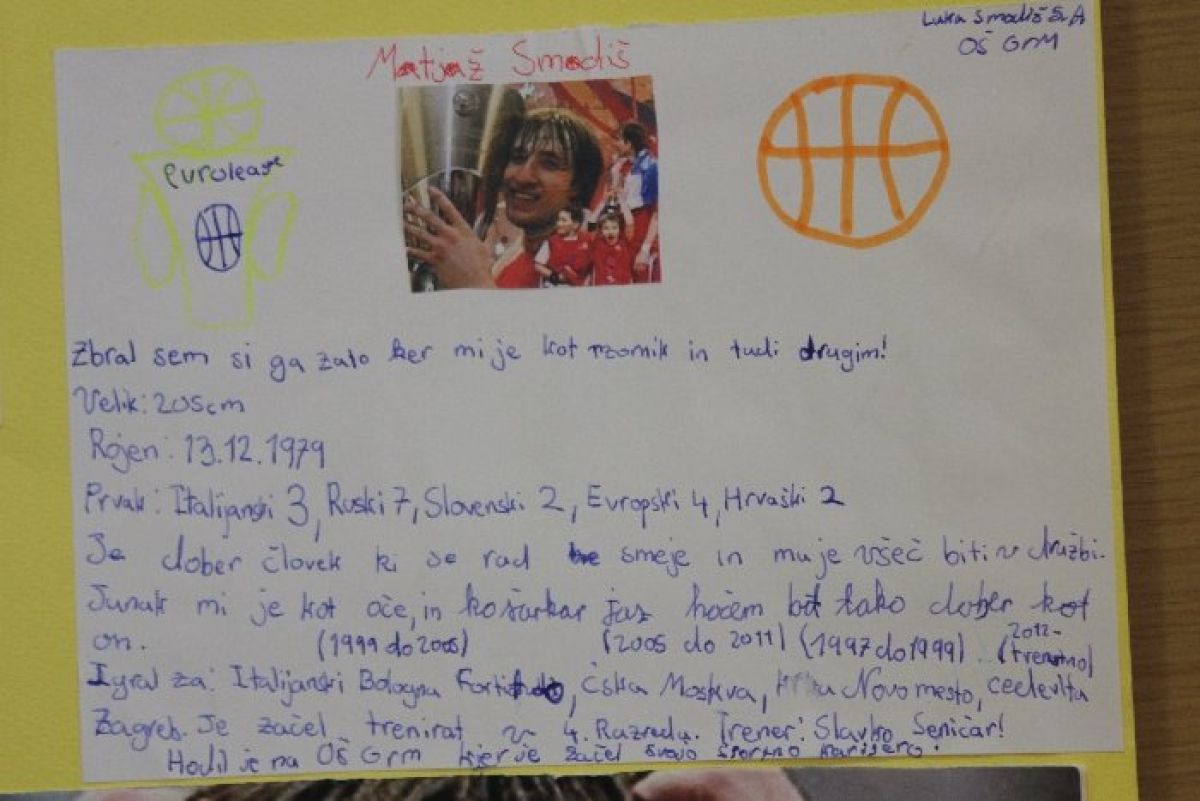 Luka Smodiš 5.A
OŠ Grm
Matjaž Smodiš
euroleage
Zbral sem si ga zato ker mi je kot vzornik in tudi drugim!
Velik: 205cm
Rojen: 13.12.1979
Prvak: Italijanski 3, Ruski 7, Slovenski 2, Evropski 4, Hrvaški 2
Je dober človek ki se rad smeje in mu je všeč biti v družbi.
Junak mi je kot oče, in košarkar jaz hočem bit tako dober kot
on. (1999 do 2005) (2005 do 2011) (1997 do 1999) (2012- trenutno)
Igral za: Italijanski Bologna Fortitudo, Čska Moskva, Krka Novo mesto, cedevita
Zagreb. Je začel trenirat v 4. Razredu. Trener: Slavko Seničar!
Hodil je na OŠ Grm kjer je začel svojo športno kariero.